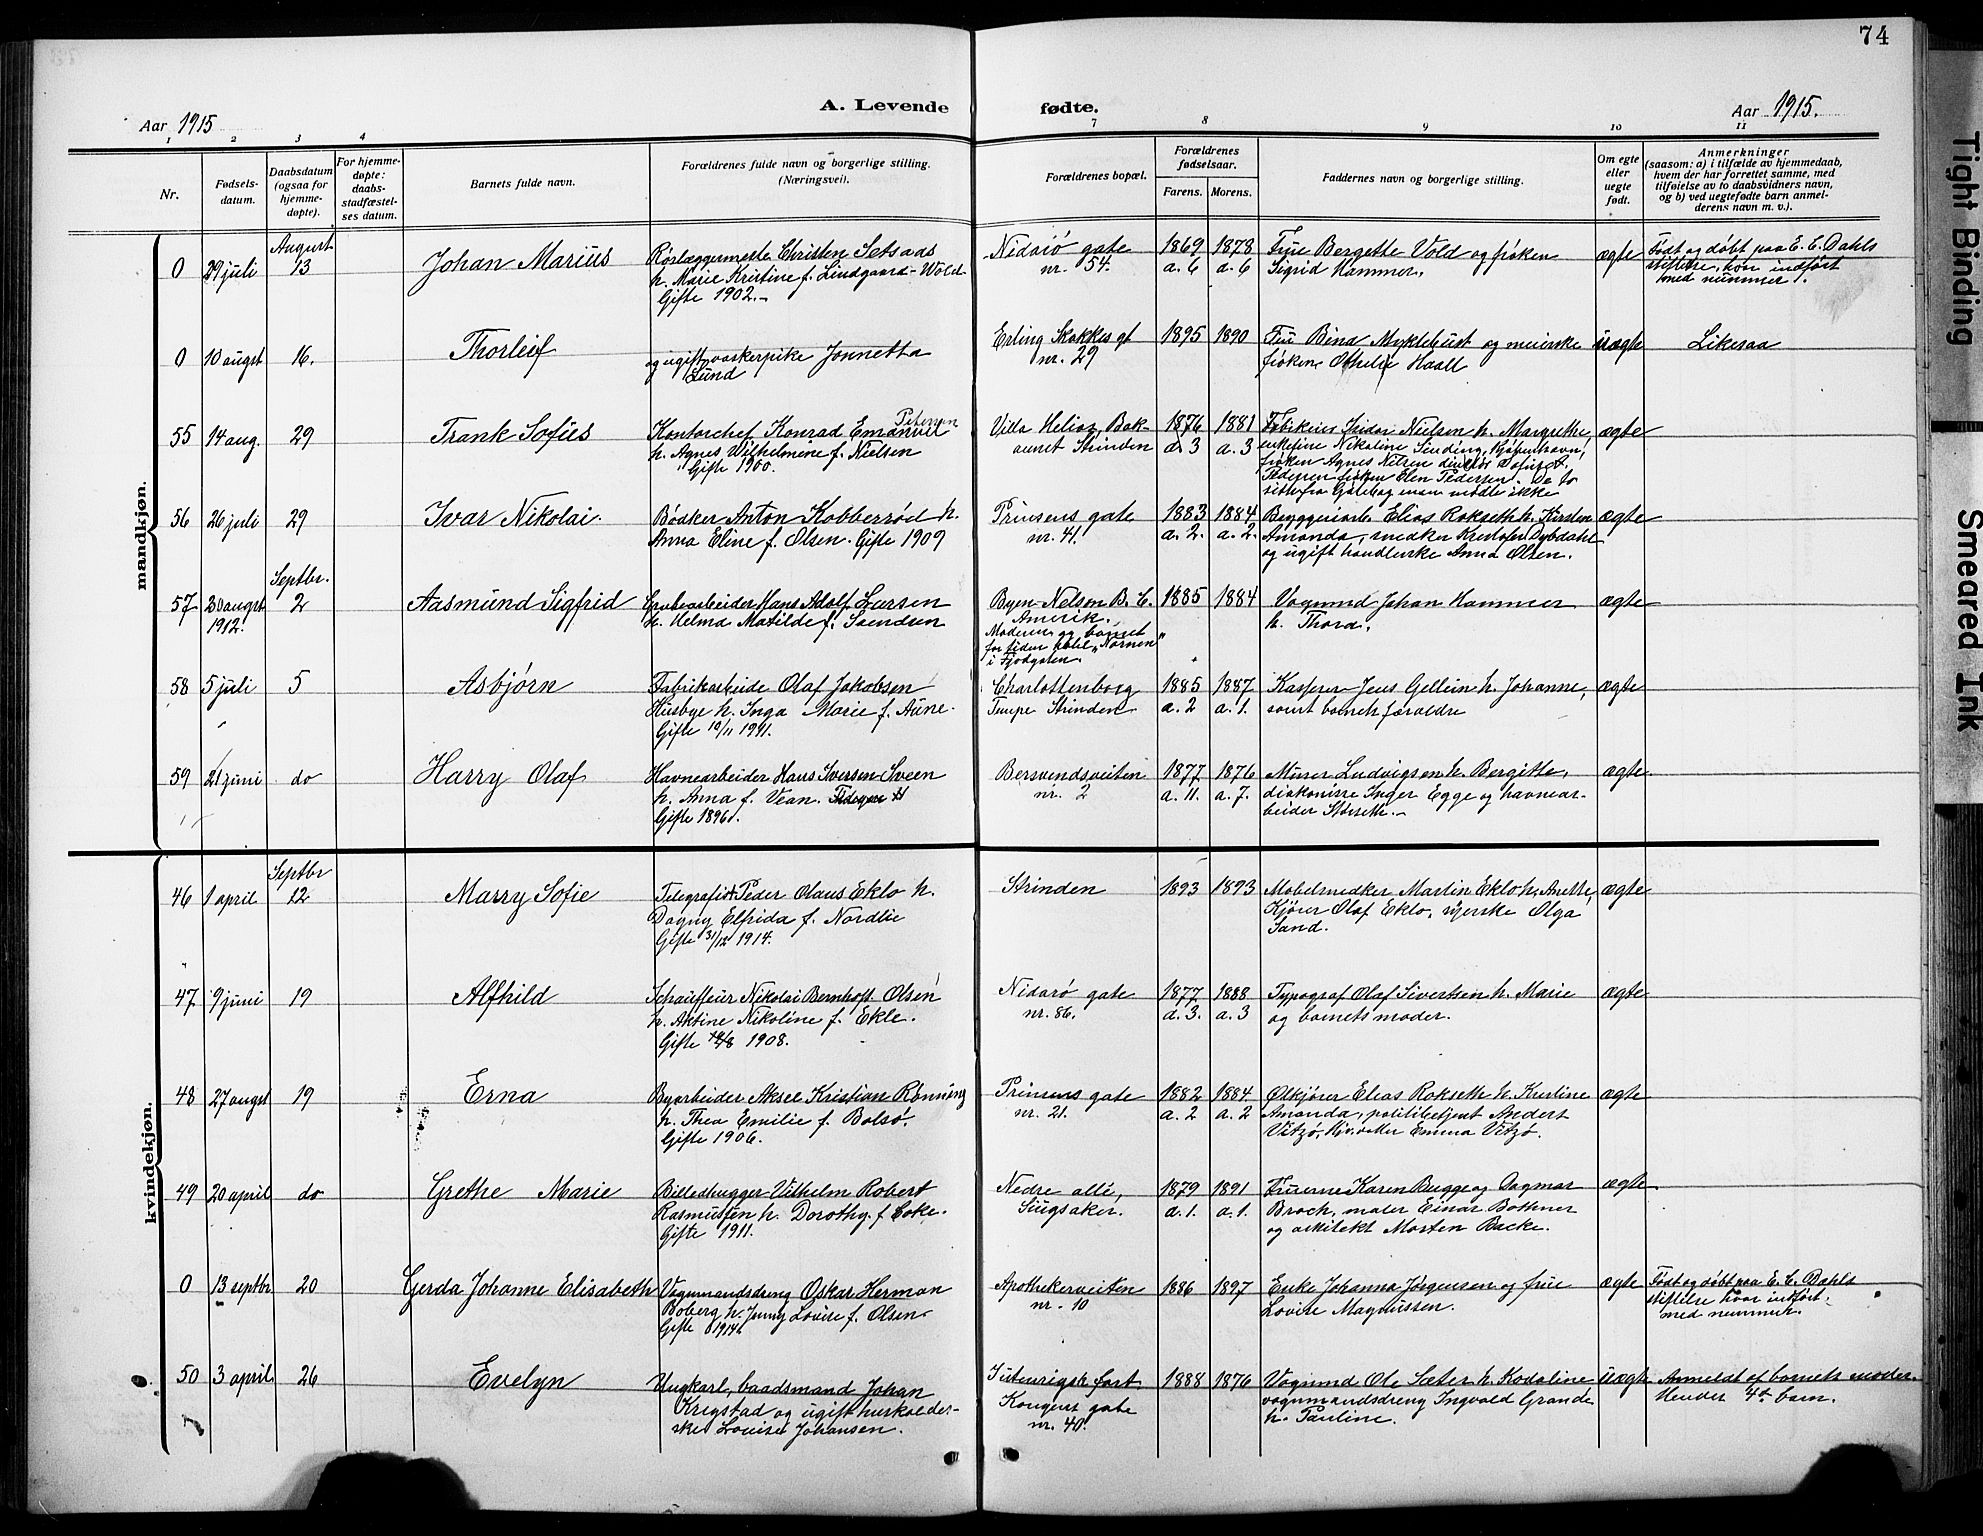 74
A. Levende fødte.
Aar 1915
Aar 1915.
1 2 3 4 7 8 9 10 11
Nr.
Fødsels-
datum.
Daabsdatum
(ogsaa for
hjemme-
døpte).
For hjemme-
døpte:
daabs-
stadfæstel-
ses datum.
Barnets fulde navn.
Forældrenes fulde navn og borgerlige stilling.
(Næringsvei).
Forældrenes bopæl.
Forældrenes
fødselsaar.
Farens. Morens.
Faddernes navn og borgerlige stilling.
Om egte
eller
uegte
født.
Anmerkninger
(saasom: a) i tilfælde av hjemmedaab,
hvem der har forrettet samme, med
tilføielse av to daabsvidners navn,
og b) ved uegtefødte barn anmel-
derens navn m. v.).
mandkjøn.
August
0 29 juli 13 Johan Marius
Rørlæggermester Christen Setsaas
h. Marie Kristine f. Lindgaard-Wold
Gifte 1902.
Nidarö gate
nr. 54.
1869 1878
a. 6 a. 6
Frue Bergette Vold og frøken
Sigrid Hammer.
ægte
Født og døbt paa E. C. Dahls
stiftelse, hvor indført
med nummer 1.
0 10 augst 16. Thorleif
og ugift vaskerpike Jonnetta
Lund
Erling Skakkes gt
nr. 29
1895 1890
Fru Bina Myklebust og meierske
frøken Othelie Haall
uægte
Likesaa
55 14 aug. 29 Frank Sofus
Kontorchef Konrad Emanuel Petersen
h. Agnes Wilhelmine f. Nielsen
Gifte 1900.
Vida Helioz Bak
aunet Strinden
1876 1881
a. 3 a. 3
Fabrikeier Nielsen h. Margrethe,
enkefrue Nikoline Sinding, Kjøbenhavn,
frøken Agnes Nilsen direktør Sofus A.
Pedersen frøken Elen Pedersen. De to
sidste fra Gøteborg men mødte ikke
ægte
56 26 juli 29 Ivar Nikolai.
Bødker Anton Kobberrød h.
Anna Eline f. Olsen. Gifte 1909
Prinsens gate
nr. 41.
1883 1884
a. 2. a. 2.
Bryggeriarb. Elias Rokseth h. Kirsten
Amanda, snedker Kristofer Dybdahl
og ugift handlerske Anna Olsen.
ægte
Septbr.
57 20 augst 2 Aasmund Sigfrid
1912.
Grubearbeider Hans Adolf Larsen
h. Helma Matilde f. Svendsen
Byen Nelson B. C.
Amerik.
Moderen og barnet
for tiden hotel "Nornen"
i Fjordgaten.
1885 1884
Vognmd Johan Hammer
h. Thora.
ægte
58 5 juli 5 Asbjørn
Fabrikarbeide Olaf Jakobsen
Husbye h. Inga Marie f. Aune.
Gifte 10/11 1911.
Charlottenborg
Tempe Strinden
1885 1887
a. 2 a. 1.
Kasserer Jens Gellein h. Johanne,
samt barnets forældre
ægte
59 21 juni do Harry Olaf
Havnearbeider Hans Iversen Sveen
h. Anna f. Vean.
Gifte 1896.
Bersvendsveiten
nr. 2
1877 1876
a. 11. a. 7.
Murer Ludvigsen h. Bergitte,
diakonisse Inger Egge og havnear-
beider Storseth.
ægte
kvindekjøn.
Septbr
46 1 april 12 Marry Sofie
Telegrafist Peder Olaus Eklo h.
Dagny Elfrida f. Nordlie
Gifte 31/12 1914.
Strinden
1893 1893
Møbelsnedker Martin Eklo h. Anette,
Kjører Olaf Eklo, syerske Olga
Sand.
ægte
47 9 juni 19 Alfhild
Schauffeur Nikolai Bernhoft Olsen
h. Aktine Nikoline f. Ekle.
Gifte 18/8 1908.
Nidarö gate
nr. 86.
1877 1888
a. 3. a. 3
Typograf Olaf Sivertsen h. Marie
og barnets moder.
ægte
48 27 augst 19 Erna
Byarbeider Aksel Kristian Rønning
h. Thea Emilie f. Bolsø.
Gifte 1906.
Prinsens gate
nr. 21.
1882 1884
a. 2 a. 2
Ølkjører Elias Rokseth h. Kirstine
Amanda, politibetjent Anders
Vitzø, Emma Vitzø.
ægte
49 20 april do Grethe Marie
Billedhugger Vilhelm Robert
Rasmussen h. Dorothy f. Coke.
Gifte 1911.
Nedre allé,
Singsaker.
1879 1891
a. 1. a. 1
Fruerne Karen Bugge og Dagmar
Broch, maler Einar Bothner
og arkitekt Morten Backe.
ægte
0 13 septbr 20 Gerda Johanne Elisabeth
Vognmandsdreng Oskar Herman
Boberg h. Jenny Lovise f. Olsen.
Gifte 1914
Apothekerveiten
nr. 10
1886 1897
Enke Johanna Jörgensen og frue
Lovise Magnussen.
ægte
Født og døbt paa E. C. Dahls
stiftelse hvor indført
med nummer.
50 3 april 26 Evelyn
Ungkarl, baadsmand Johan
Krigstad og ugift husholder-
ske Louise Johansen.
Kongens gate
nr. 40.
1888 1876
Vognmd Ole Sæter h. Kodoline
vognmandsdreng Ingvald Grande
h. Pauline.
uægte
Anmeldt af barnets moder.
Hendes 4de barn.
Tight Binding
Smeared Ink